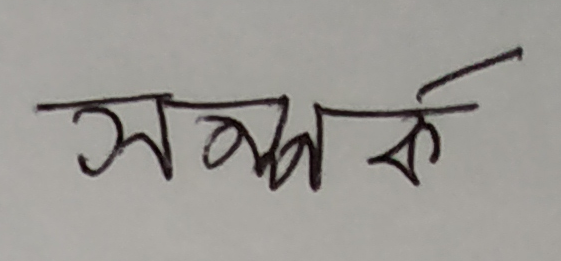 সম্পর্ক